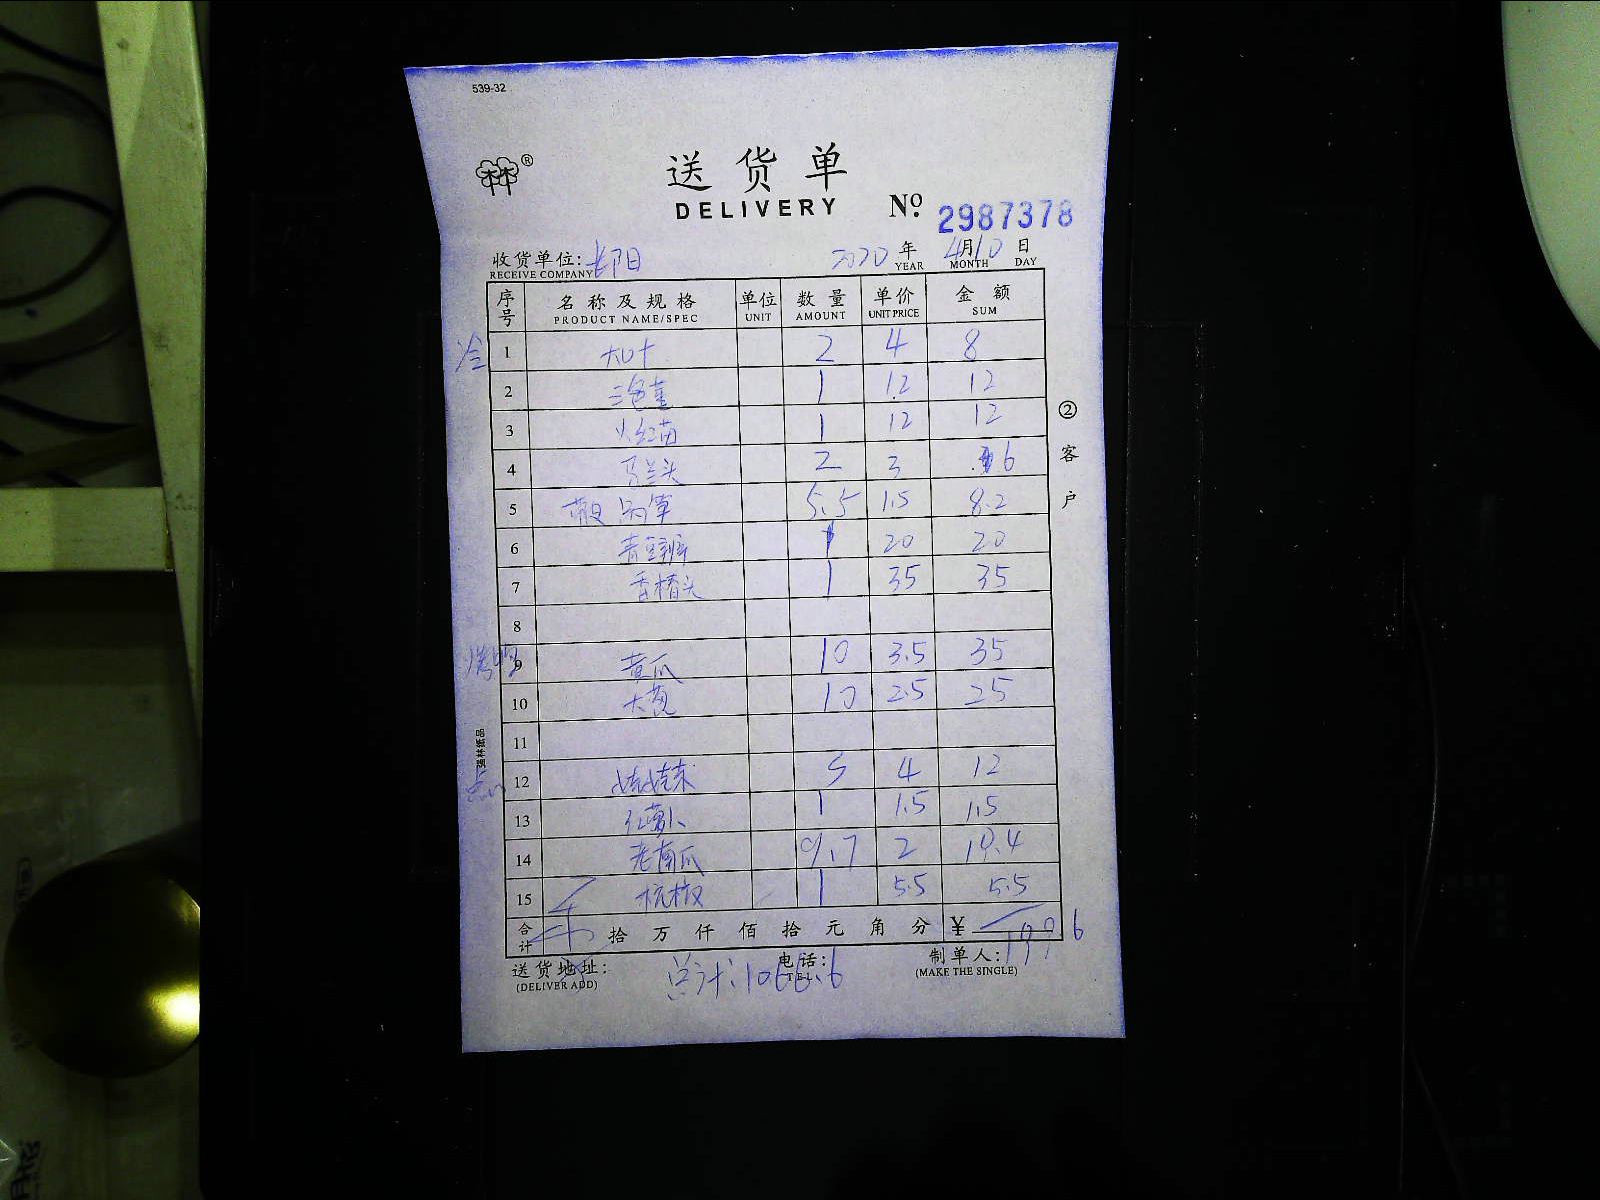 539-32
林®
送货单
DELIVERY № 2987378
收货单位: 长阳 2020 年 4 月 10 日
RECEIVE COMPANY YEAR MONTH DAY
序号 名称及规格 单位 数量 单价 金额
PRODUCT NAME/SPEC UNIT AMOUNT UNIT PRICE SUM
冷 1 大叶 2 4 8
2 三色堇 1 12 12
3 火红苗 1 12 12
4 马兰头 2 3 6
5 5.5 1.5 8.2
6 青豆瓣 1 20 20
7 香椿头 1 35 35
8
9 黄瓜 10 3.5 35
10 大葱 10 2.5 25
11
12 娃娃菜 3 4 12
13 红萝卜 1 1.5 1.5
14 老南瓜 9.7 2 19.4
15 杭椒 1 5.5 5.5
合计 拾 万 仟 佰 拾 元 角 分 ¥ 199.6
送货地址: 电话: 制单人:
(DELIVER ADD) TEL (MAKE THE SINGLE)
总计: 1066.6
②客户
强林纸品